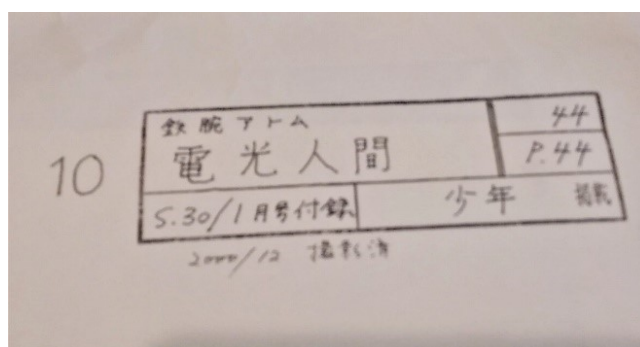 10
鉄腕アトム
44
電光人間
P.44
S.30/1月号付録
少年 掲載
2000/12 撮影済